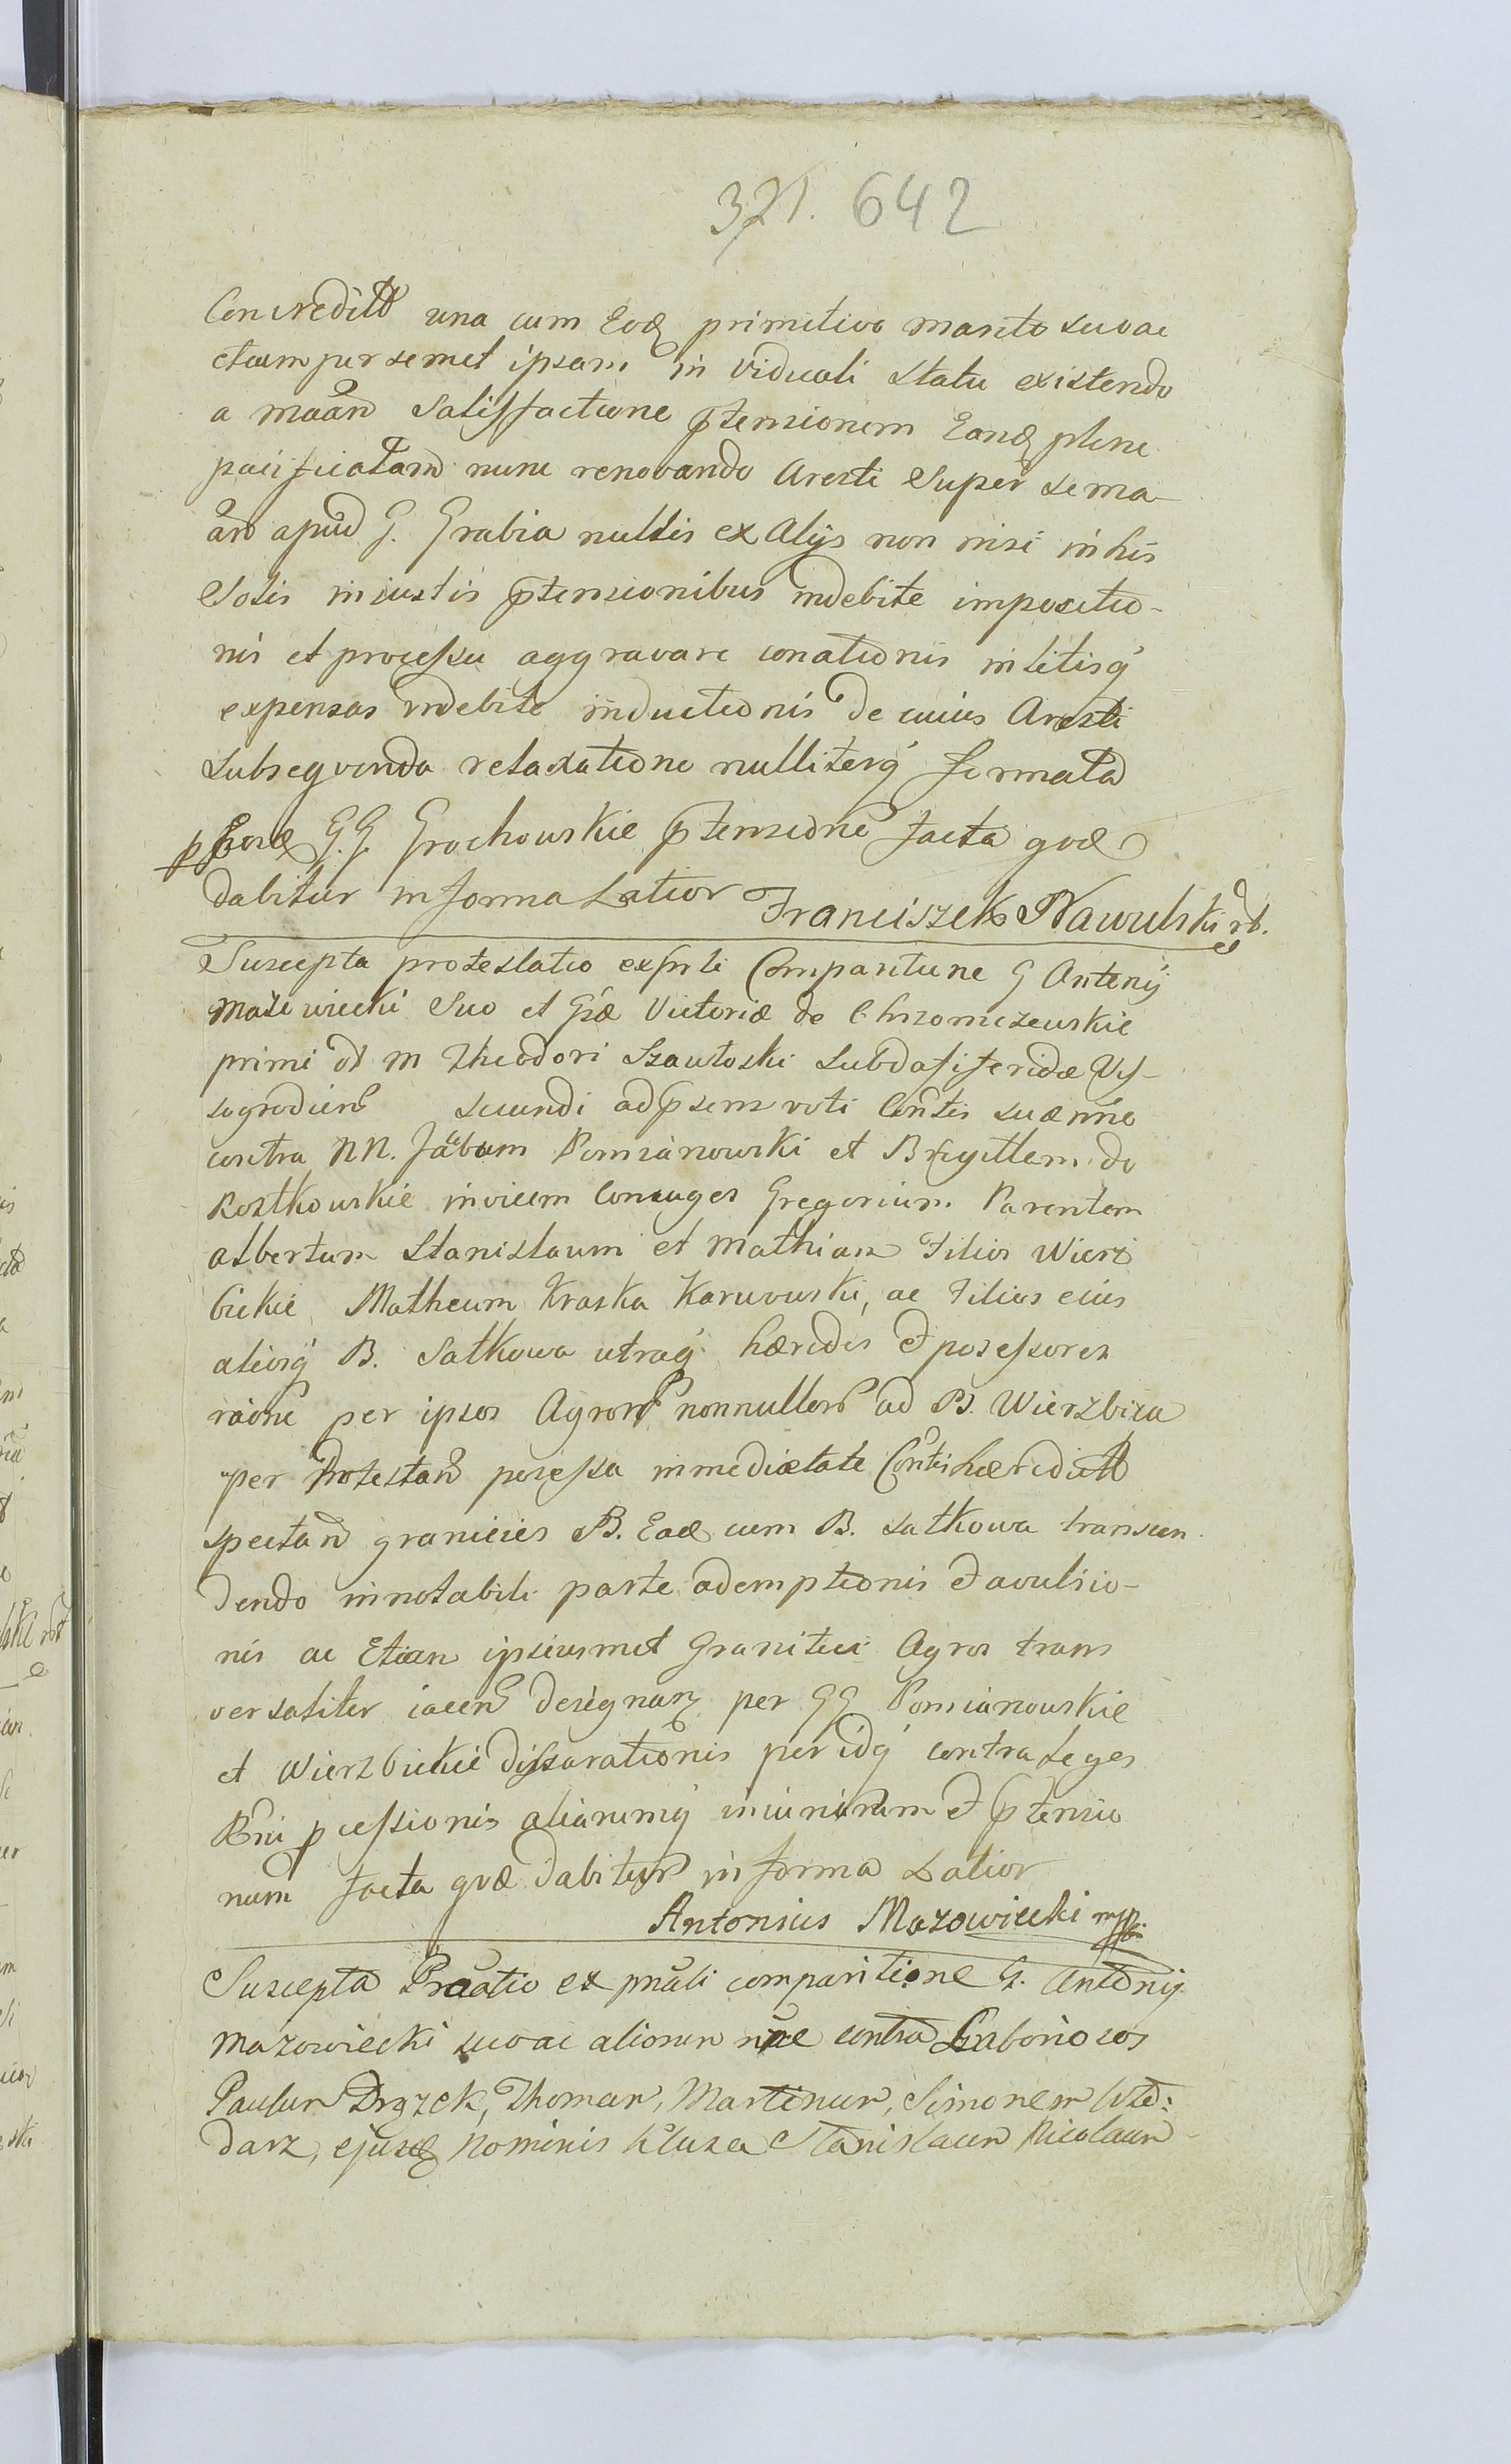 321. 642
Concredittt una cum Eod primitivo marito suo ac
etiam per semet ipsam in viduali statu existendo
a maan Satisfactione ptensionem Eand plene
pacificatam nunc renovando Aresti Super se ma-
an apud G. Grabia nullis ex Alijs non nisi in his
Solis iniustis ptensionibus indebite impositio-
nis et processu aggravare conationis in litisq
expensas indebite inductionis de cuius Aresti
subsequenda relaxatione nulliterq formata
p Eosd G.G. Grochowskie ptensione facta quae
dabitur in forma Latior Franciszek Nawulski
Suscepta protestatio ex prli Comparitione G Antonij
Mazewiecki Suo et Gsae Victoriae de Chrzomczewskie
primi ol M Theodori Szautoski Subdapiferidae Vis-
sogrodien secundi ad psens voti Contis suae nne
contra NN. Jacbum Pomianowski et Brigittam de
Rostkowskie invicem Coniuges Gregorium Parentem
albertum Stanislaum et Mathiam Filios Wierz
bickie Matheum Kraska Karwowski, ac Filios eius
aliosq B. Satkowa utraq haeredes et posessores
raone per ipsos Agrorum nonnullorum ad B. Wierzbica
per Protestan posessa in medietate Contis haereditt
spectan granicies B. Ead cum B. Satkowa transcen
dendo in notabili parte ademptionis et avulsio-
nis ac Etiam ipsiusmet Graniciei Agros trans
versaliter iacen designan per GG Pomianowskie
et Wierzbickie dissarationis per idq contra Leges
Rni pcessionis aliarumq iniuriarum et ptensio
num facta quae dabitur in forma Latior
Antonius Mazowiecki mpp.
Suscepta Praatio ex pnali comparitione G. Antonij
Mazowiecki suo ac aliorum nne contra Laboriosos
Paulum Drązek, Thomam, Martinum, Simonem Wło:
darz, ejusd Nominis Kluza Stanislaum Nicolaum